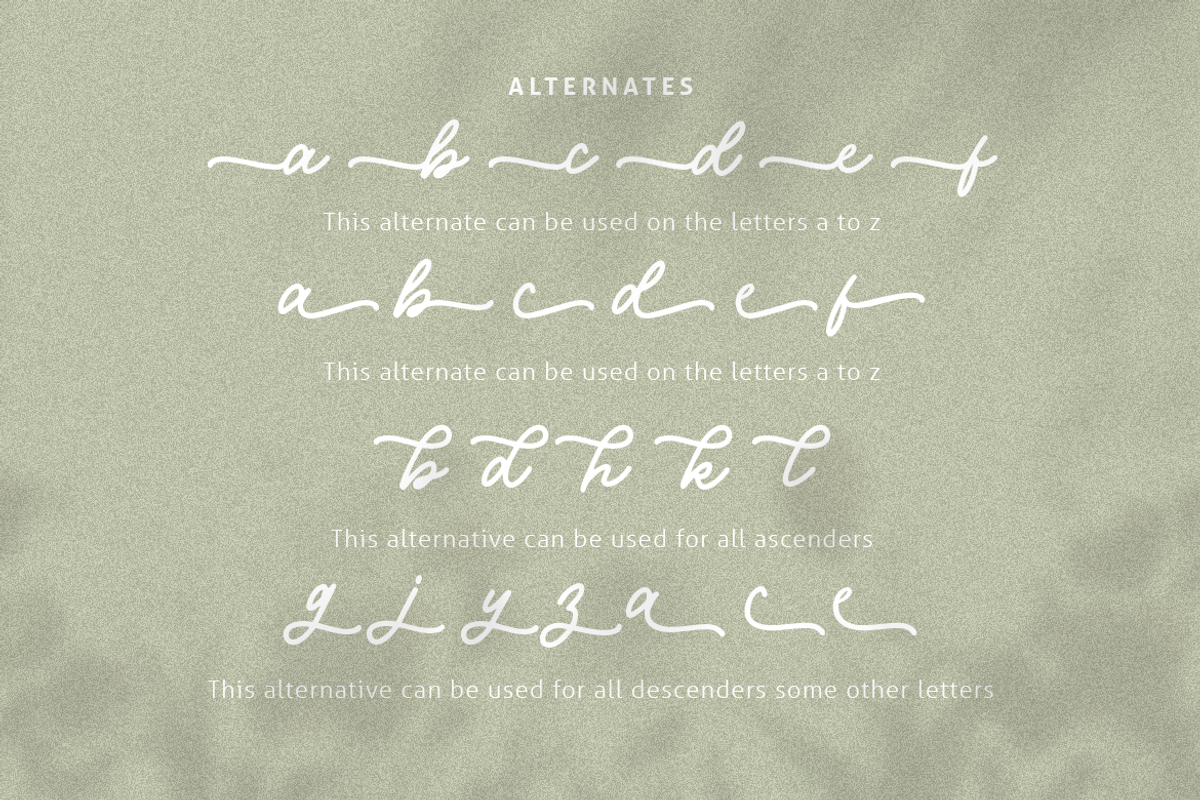 ALTERNATES
a b c d e f
This alternate can be used on the letters a to z
a b c d e f
This alternate can be used on the letters a to z
b d h k l
This alternative can be used for all ascenders
g j y z a c e
This alternative can be used for all descenders some other letters